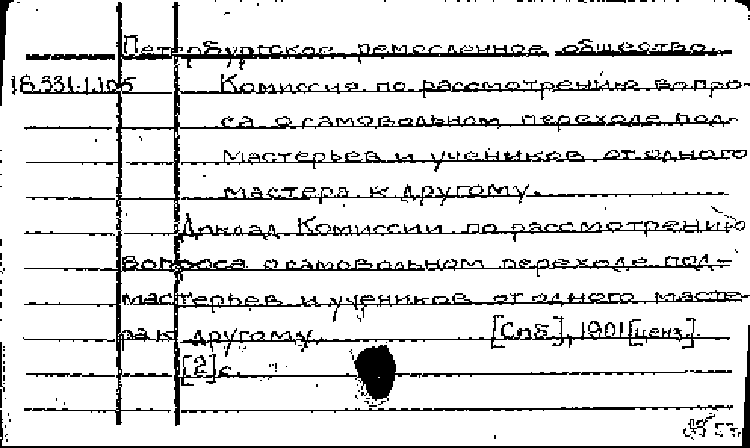 Петербургское ремесленное общество.
18.331.1.105 Комиссия по рассмотрению вопро-
са о самовольном переходе под-
мастерьев и учеников от одного
мастера к другому.
Доклад Комиссии по рассмотрению
вопроса о самовольном переходе под-
мастерьев и учеников от одного масте-
ра к другому. [Спб.], 1901 [ценз.].
[2] с.